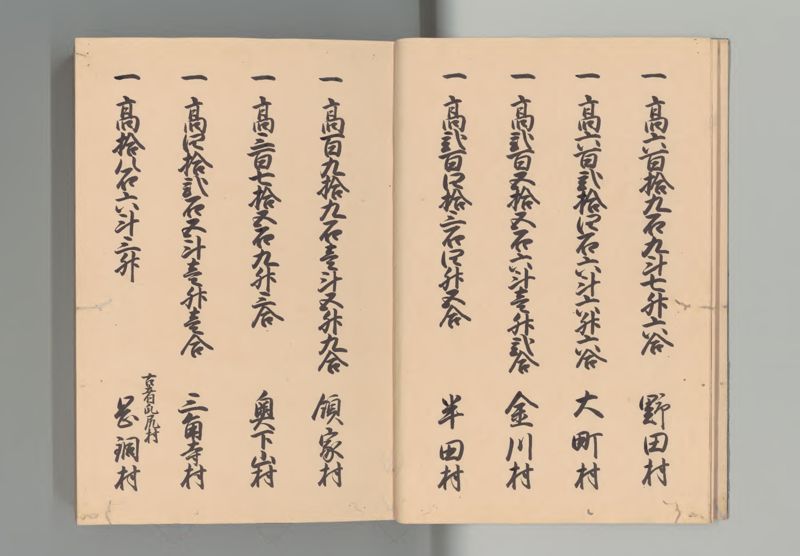 一 高六百拾九石九斗七升六合 野田村
一 高六百弐拾四石六斗六升六合 大町村
一 高弐百五拾五石六斗壱升弐合 金川村
一 高弐百四拾三石四升五合 半田村
一 高百九拾九石壱斗五升九合 領家村
一 高三百七拾五石九升三合 奥下山村
一 高四拾弐石五斗壱升壱合 三角寺村
一 高拾八石六斗三升 村